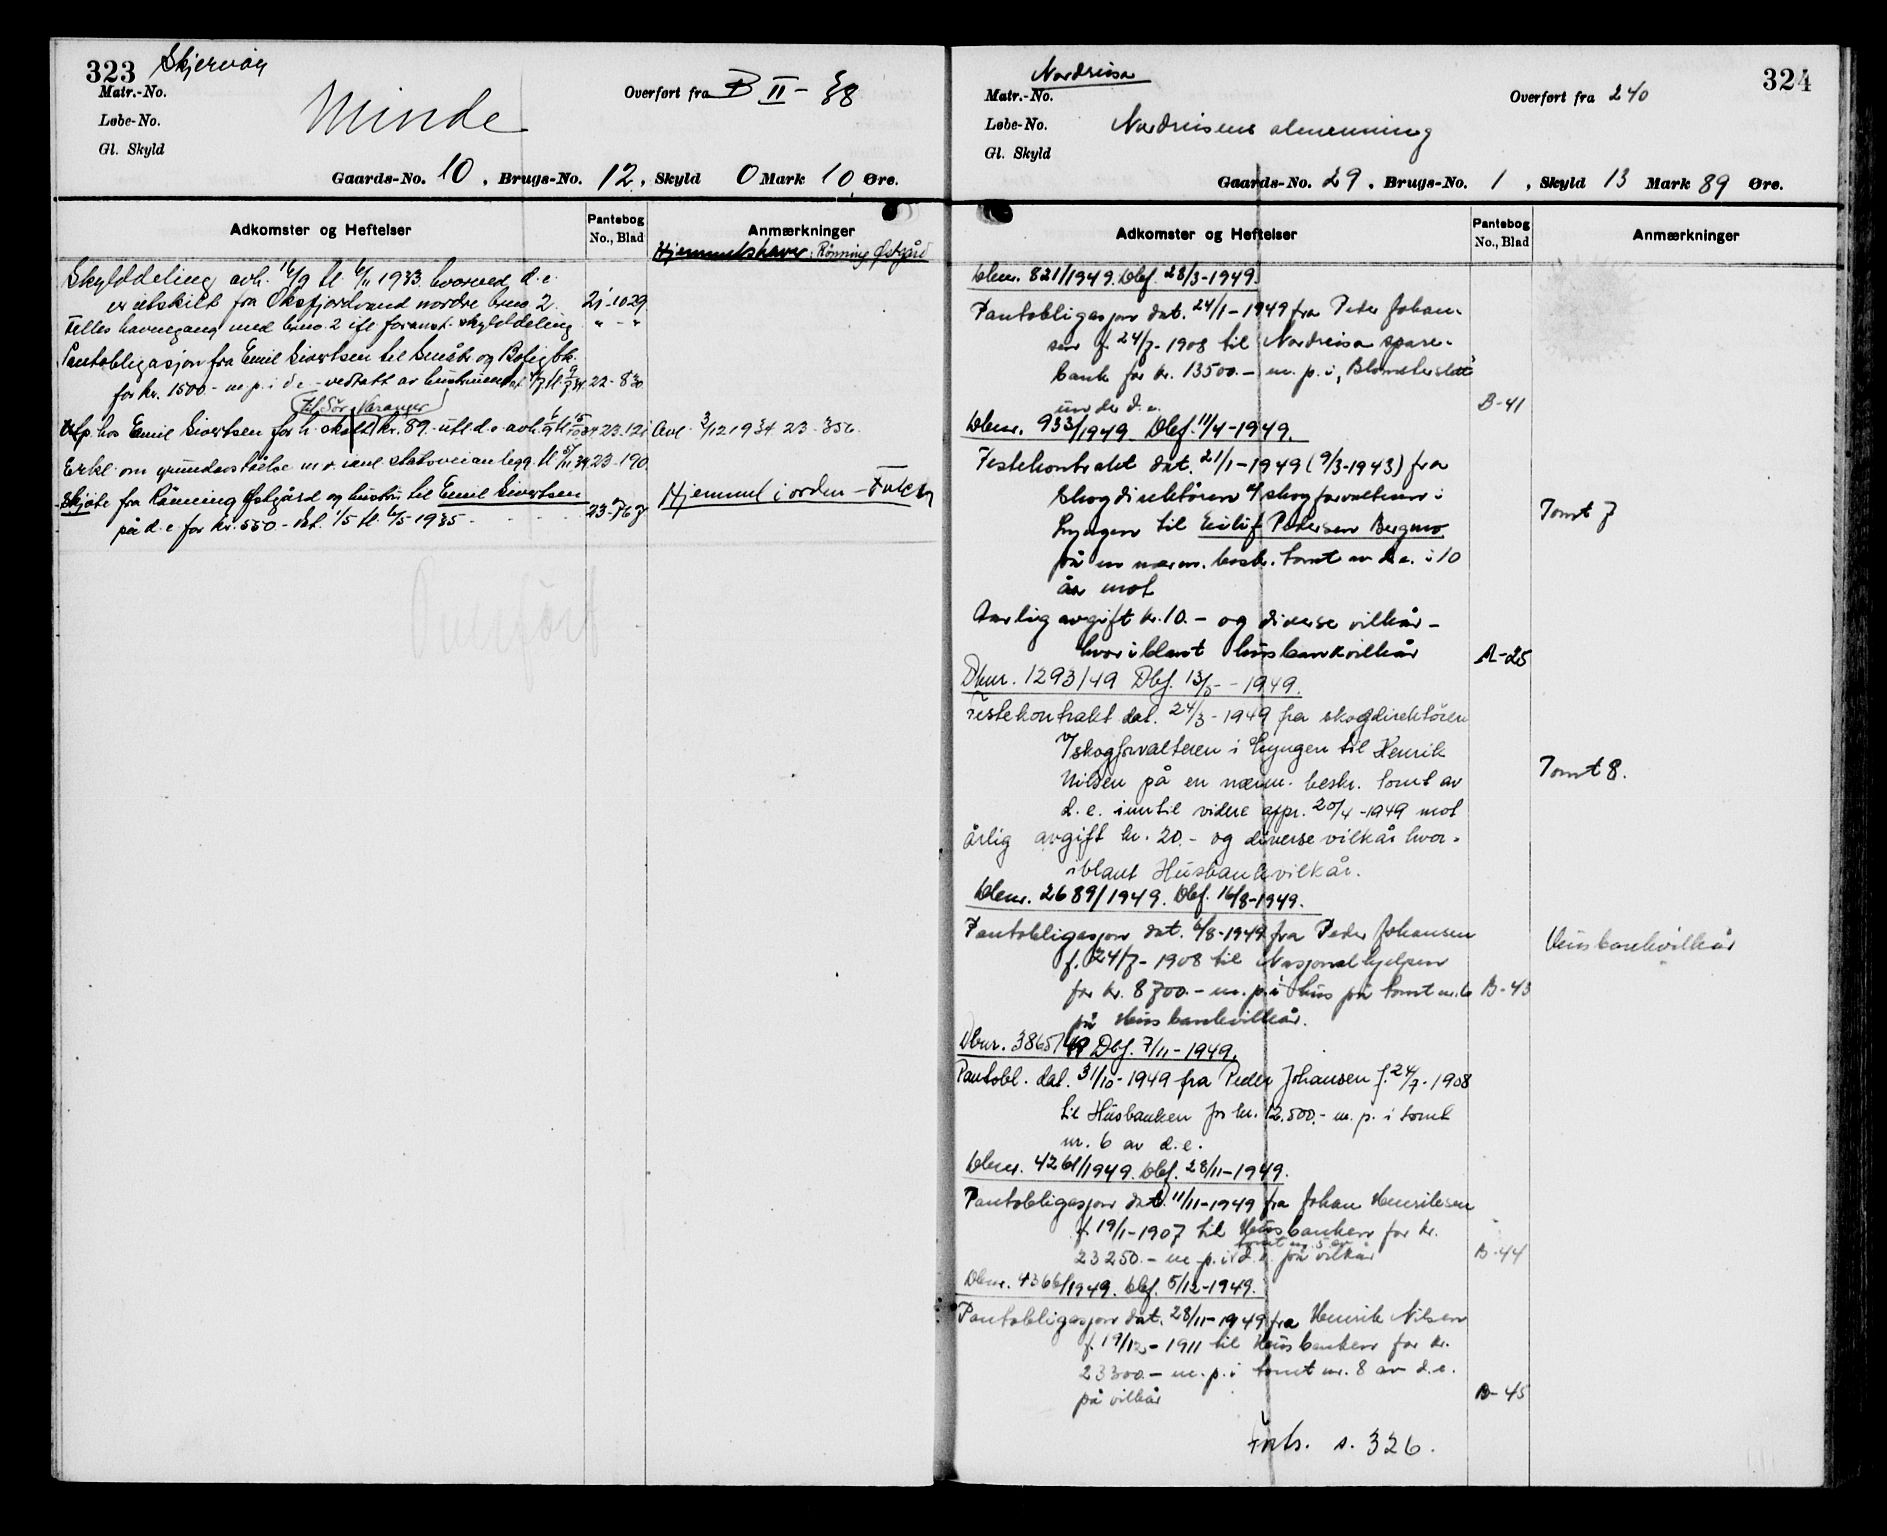 323 Skjervøy
Matr.-No.
Løbe-No.
Gl. Skyld
Minde
Overført fra B II - 88
Gaards-No. 10, Brugs-No. 12, Skyld 0 Mark 10 Øre.
Adkomster og Heftelser
Pantebog No., Blad
Anmærkninger
Hjemmelshaver: Rönning Östgård
Skylddeling avh. 16/9 tl. 6/11 1933 hvorved d.e.
er utskilt fra Oksfjordvand nordre bno. 2. 21-1029
Felles havnegang med bno. 2 ifl foranst. skylddeling " - "
Pantobligasjon fra Emil Sivertsen til Småbr og Boligbk.
for kr. 1500.- m. p. i d.e. - vedtatt av hustruen 22-830
til Sör Varanger
Utlp. hos Emil Sivertsen for h. skatt kr. 89.- utl. d.e. 23-121 Avl. 3/12 1934 23-356.
Erkl. om grundavståelse m.v. ianl statsveianlegg 23-190.
Skjöte fra Rönning Östgård og hustru til Emil Sivertsen
på d.e. for kr. 550.- dat. 1/5 tl. 6/5-1935 - - - 23-767
Hjemmel i orden -
Overført
Nordreisa
324
Matr.-No.
Løbe-No.
Gl. Skyld
Nordreisens almenning
Overført fra 240
Gaards-No. 29, Brugs-No. 1, Skyld 13 Mark 89 Øre.
Adkomster og Heftelser
Pantebog No., Blad
Anmærkninger
Dbnr. 821/1949. Dbf. 28/3-1949.
Pantobligasjon dat. 24/1-1949 fra Peder Johan-
sen f. 24/7-1908 til Nordreisa spare-
bank for kr. 13500.- m. p. i,
under d.e. B-41
Dbnr. 933/1949. Dbf. 11/4-1949.
Festekontrakt dat. 21/1-1949 (9/3-1943) fra
Skogdirektören v/ skogforvalteren i
Lyngen til Eilif Pedersen Bergmo Tomt 7
på en nærm. beskr. tomt av d.e. i 10
år mot
Aarlig avgift kr. 10.- og diverse vilkår -
hvoriblant husbankvilkår A-25
Dbnr. 1293/49 Dbf. 13/5-1949.
Festekontrakt dat. 24/3-1949 fra skogdirektören
v/skogforvalteren i Lyngen til Henrik
Nilsen på en nærm. beskr. tomt av Tomt 8.
d.e. inntil videre appr. 20/4-1949 mot
årlig avgift kr. 20.- og diverse vilkår hvor-
iblant Husbankvilkår.
Dbnr. 2689/1949. Dbf. 16/8-1949.
Pantobligasjon dat. 6/8-1949 fra Peder Johansen Husbankvilkår
f. 24/7-1908 til Nasjonalhjelpen
for kr. 8700.- m. p. i hus på tomt nr. 6 B-43
på Husbankvilkår.
Dbnr. 3865/49 Dbf. 7/11-1949.
Pantobl. dat. 31/10-1949 fra Peder Johansen f. 24/7-1908
til Husbanken for kr. 12.500.- m. p. i tomt
nr. 6 av d.e.
Dbnr. 4261/1949. Dbf. 28/11-1949.
Pantobligasjon dat. 11/11-1949 fra Johan Henriksen
f. 19/1-1907 til Husbanken for kr.
tomt nr. 5 av
23250.- m. p. i d.e. på vilkår B-44
Dbnr. 4366/1949. Dbf. 5/12-1949.
Pantobligasjon dat. 28/11-1949 fra Henrik Nilsen
f. 19/12-1911 til Husbanken for kr.
23300.- m. p. i tomt nr. 8 av d.e.
på vilkår B-45
Forts. s. 326.